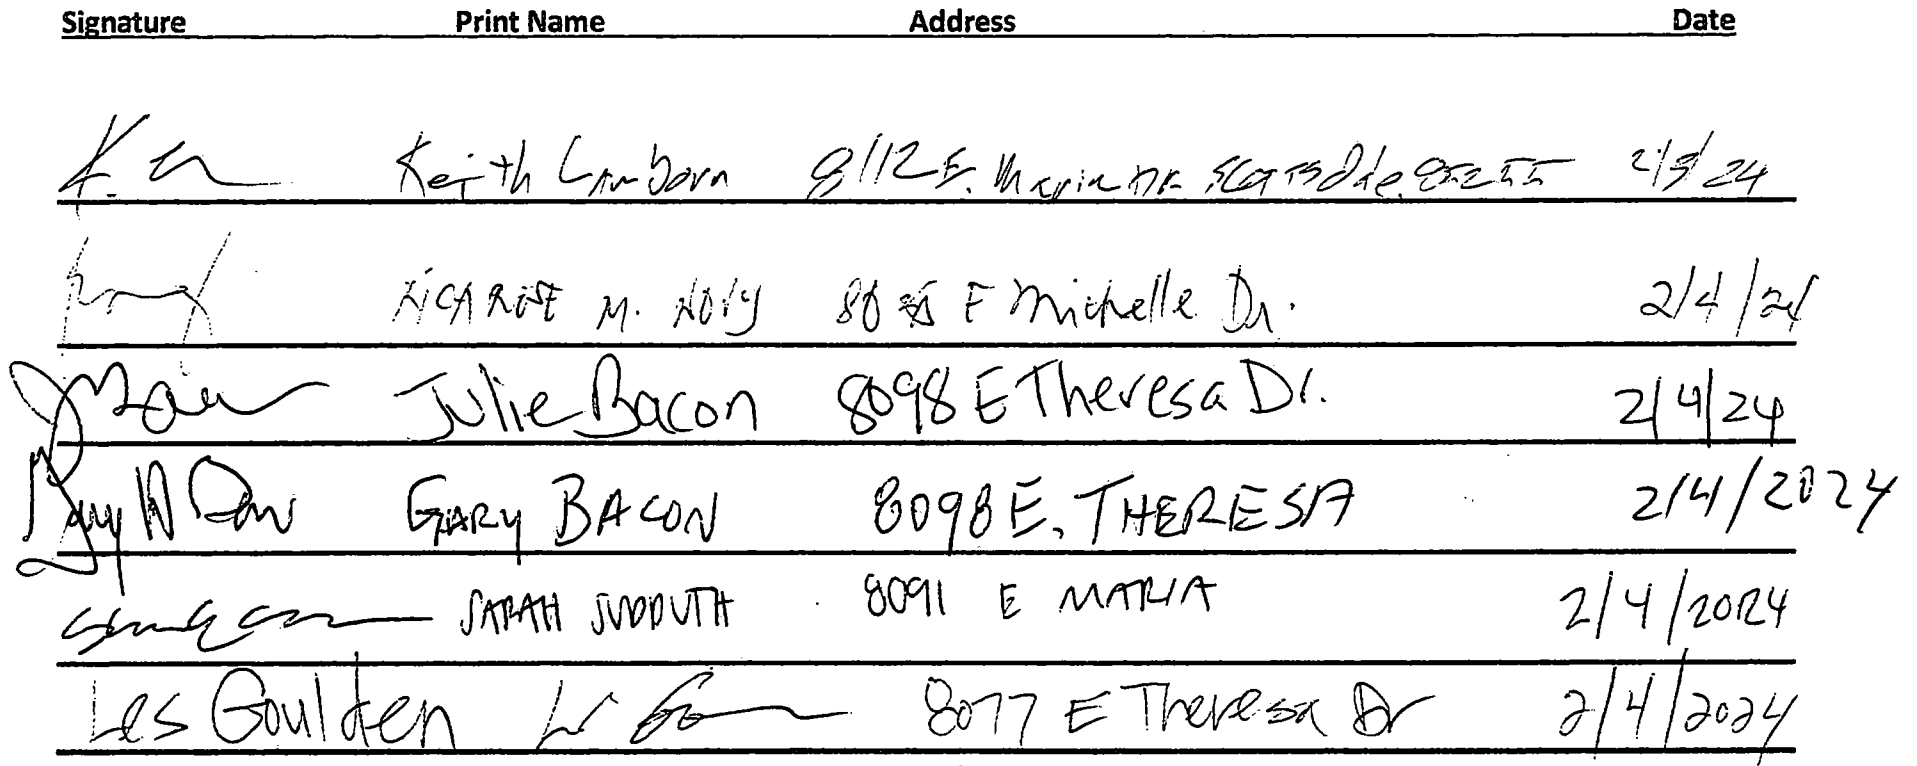 Signature Print Name Address Date
Keith 8112 E. Maria Dr. Scottsdale, 85255 2/3/24
M. Novy 80 E Michelle Dr. 2/4/24
Julie Bacon 8098 E Theresa Dr. 2/4/24
GARY BACON 8098 E. THERESA 2/4/2024
SARAH SUDDUTH 8091 E MARIA 2/4/2024
Les Goulden 8077 E Theresa Dr 2/4/2024